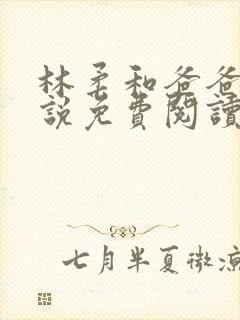 林柔和爸爸
說免費閱讀
七月半夏微涼